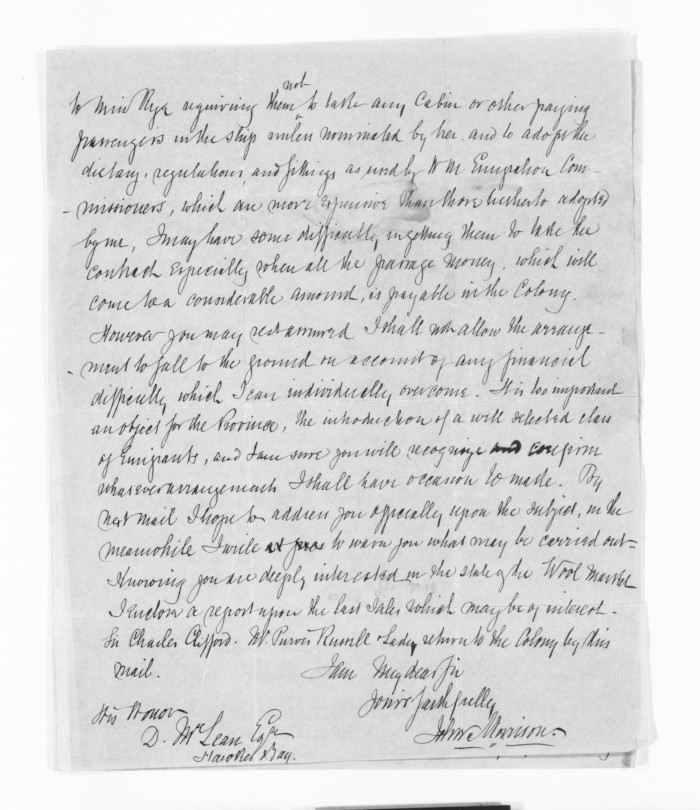 not
to Miss Rye requiring them to take any Cabin or other paying
passengers in the ship unless nominated by her. and to adopt the
dietary, regulations, and fittings as used by H M Emigration Com-
-missioners, which are more expensive than those hitherto adopted
by me, I may have some difficulty in getting them to take the
contract especially when all the passage money, which will
come to a considerable amount, is payable in the Colony.
However you may rest assured I shall not allow the arrange-
-ment to fall to the ground on account of any financial
difficulty which I can individually overcome. It is too important
an object for the Province, the introduction of a well selected class
of Emigrants, and I am sure you will recognize and confirm
whatever arrangements I shall have occasion to make. By
next mail I hope to address you officially upon the subject, in the
meanwhile I write to warn you what may be carried out-
Knowing you are deeply interested in the state of the Wool Market
I enclose a report upon the last Sales which may be of interest-
Sir Charles Clifford. Mr Purvis Russell & Lady return to the Colony by this
mail. I am My dear Sir
Yours faithfully
John Morrison.
His Honor
D. McLean Esqr
Hawkes Bay.